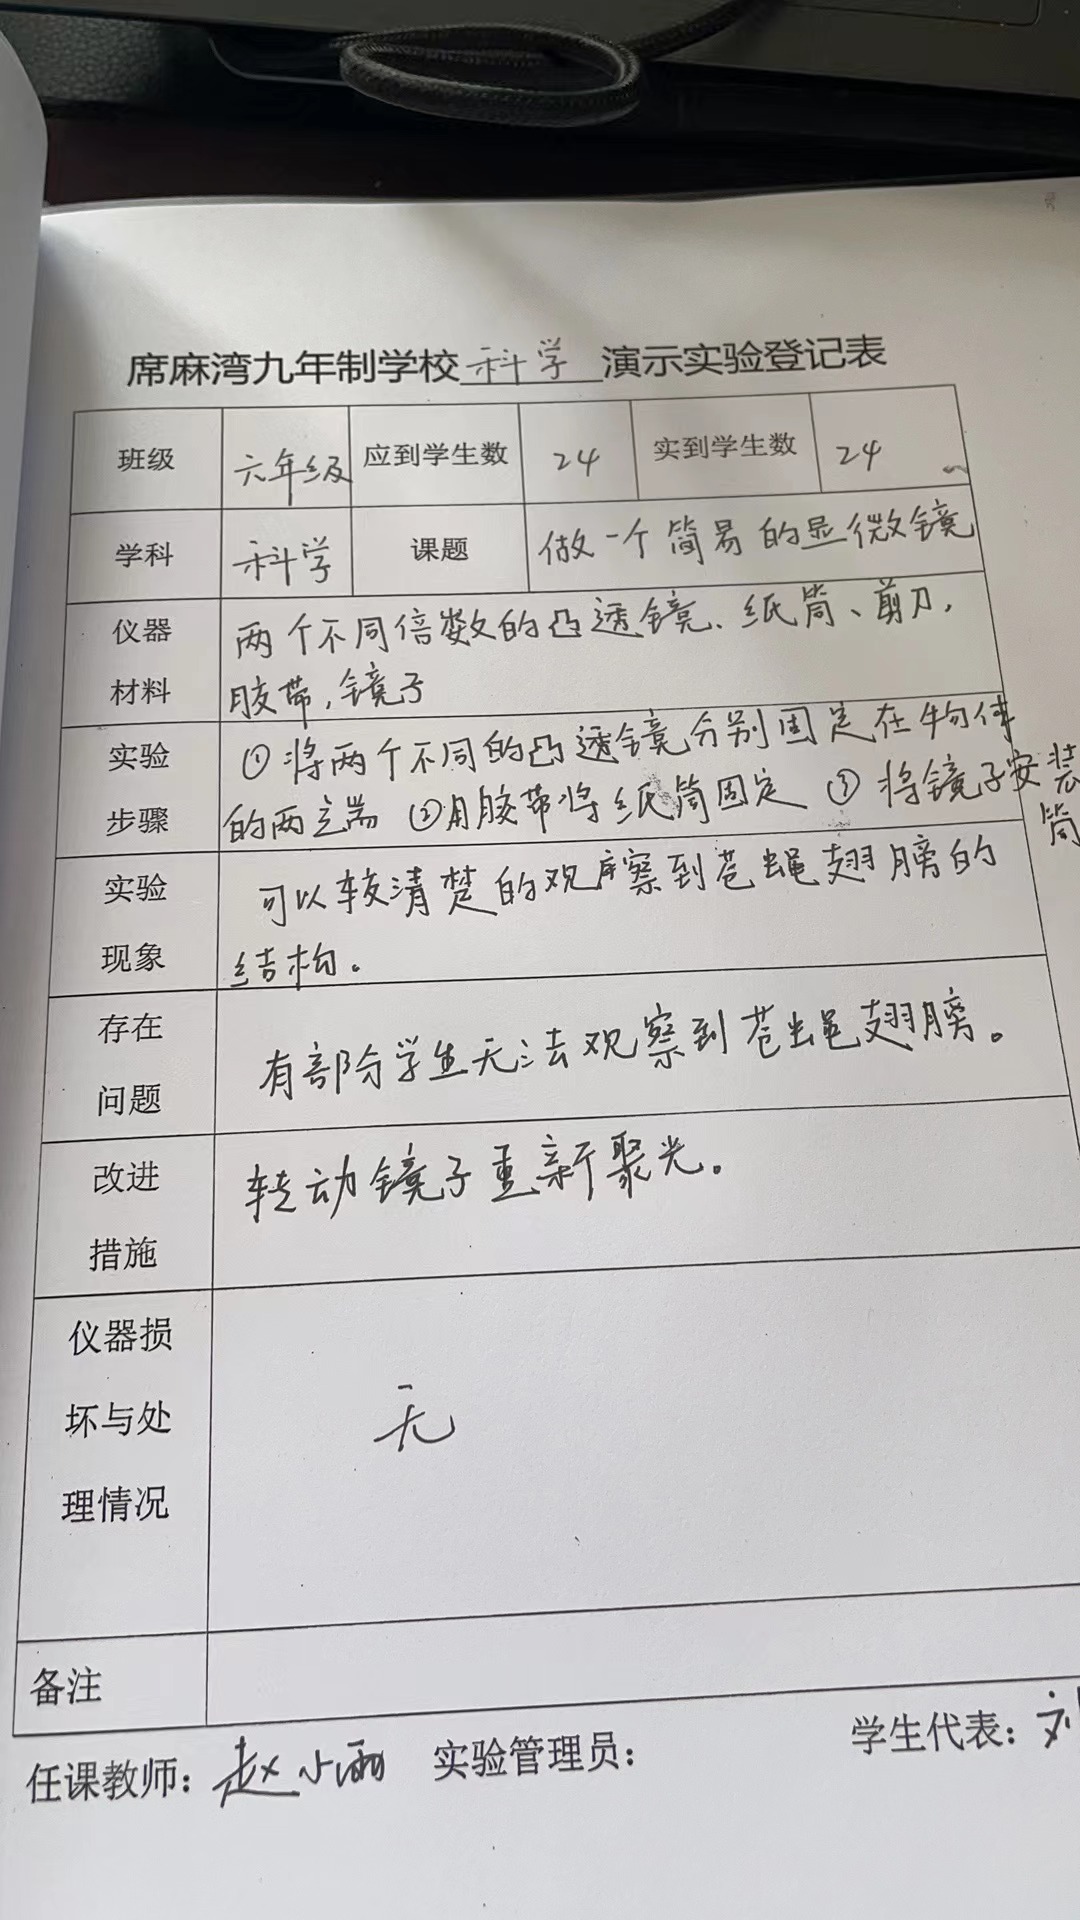 席麻湾九年制学校科学演示实验登记表
班级 六年级 应到学生数 24 实到学生数 24
学科 科学 课题 做一个简易的显微镜
仪器 两个不同倍数的凸透镜、纸筒、剪刀，
材料 胶带，镜子
实验 ①将两个不同的凸透镜分别固定在物体
步骤 的两端 ②用胶带将纸筒固定 ③将镜子安装
筒
实验 可以较清楚的观察到苍蝇翅膀的
现象 结构。
存在 有部分学生无法观察到苍蝇翅膀。
问题
改进 转动镜子重新聚光。
措施
仪器损
坏与处 无
理情况
备注
任课教师：赵小雨 实验管理员： 学生代表：刘